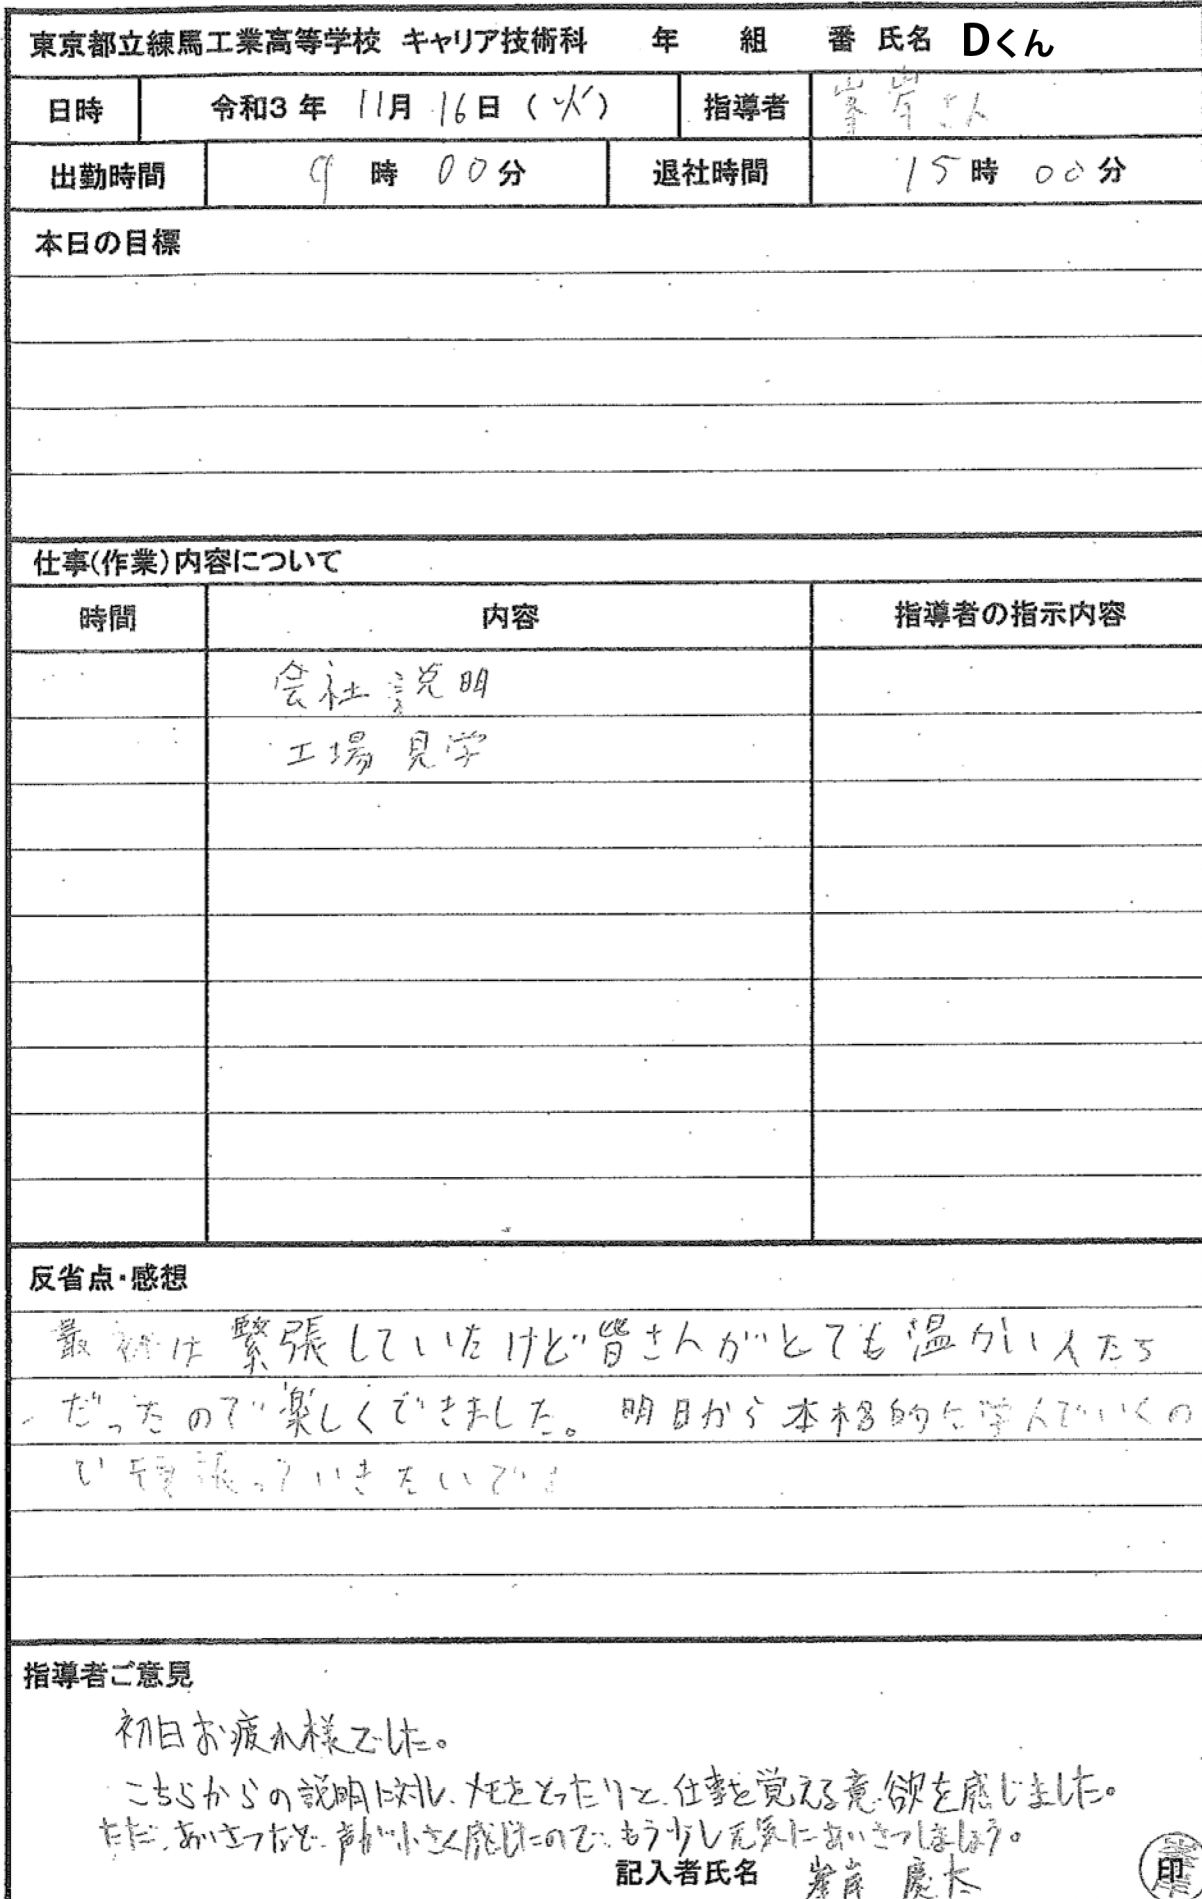 東京都立練馬工業高等学校 キャリア技術科 年 組 番 氏名 Dくん
日時 令和3年 11月 16日 (火) 指導者 峯岸さん
出勤時間 9時 00分 退社時間 15時 00分
本日の目標
仕事(作業)内容について
時間 内容 指導者の指示内容
会社説明
工場見学
反省点・感想
最初は緊張していたけど皆さんがとても温かい人たち
だったので楽しくできました。明日から本格的に学んでいくの
で頑張っていきたいです
指導者ご意見
初日お疲れ様でした。
こちらからの説明に対し、メモをとったりと、仕事を覚える意欲を感じました。
ただ、あいさつなど、声が小さく感じたので、もう少し元気にあいさつしましょう。
記入者氏名 峯岸 慶太 印